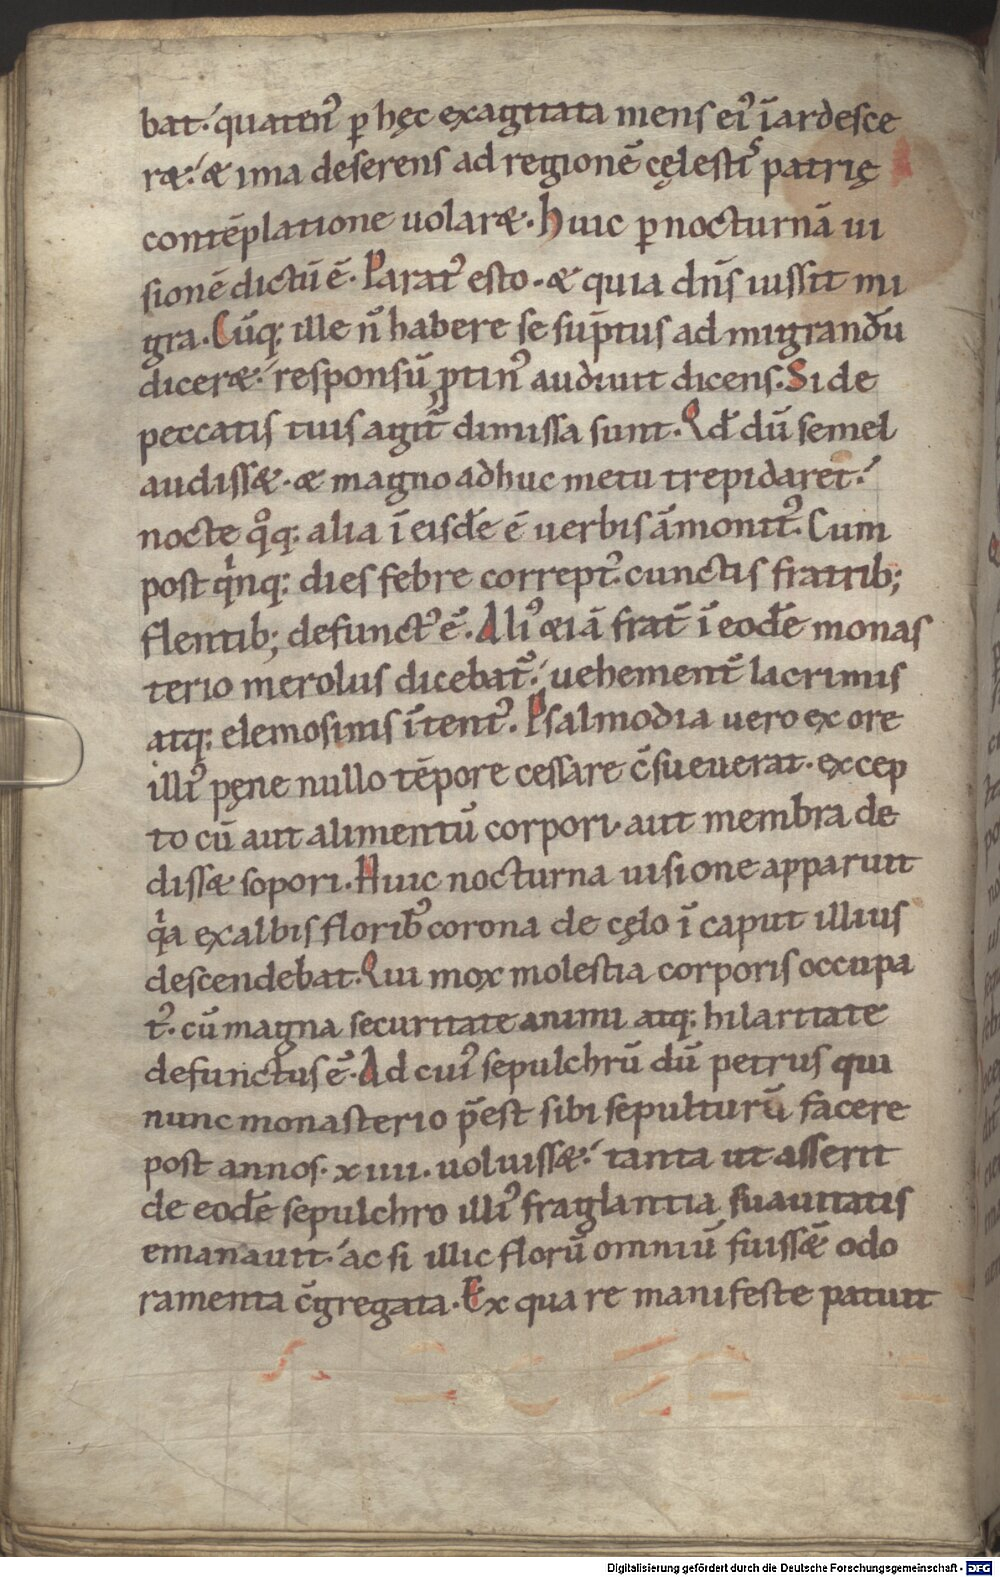 bat·́ quaten᷒ ꝑ hęc exagitata mens ei᷒ īardesce
ræ·́ & ima deserens ad regionē cęlestis patrię
contēplatione uolaræ· Huic ꝑ nocturnā ui
sionē dictū ē· Parat᷒ esto· & quia dn̄s iussit mi
gra· Cūq; ille n̄ habere se sūptus ad migrandū
diceræ·́ responsū ꝓtin᷒ audiuit dicens· Si de
peccatis tuis agit̄ dimissa sunt· Qd̄ dū semel
audissæ· & magno adhuc metu trepidaret·́
nocte qͦq; alia ī eisdē ē uerbis āmonit᷒· Cum
post qͥnq; dies febre corrept᷒· cunctis fratrib;
flentib; defunct᷒ ē· Ali᷒ &iā frat̄ ī eodē monas
terio merolus dicebat᷒·́ uehement̄ lacrimis
atq; elemosinis ītent᷒· Psalmodia uero ex ore
illi᷒ pęne nullo tēpore cessare c̄sueuerat· excep
to cū aut alimentū corpori· aut membra de
dissæ sopori· Huic nocturna uisione apparuit
qͥa ex albis florib᷒ corona de cęlo ī caput illius
descendebat· Qui mox molestia corporis occupa
t᷒· cū magna securitate animi atq; hilaritate
defunctus ē· Ad cui᷒ sepulchrū dū petrus qui
nunc monasterio p̄est sibi sepulturā facere
post annos· xiiii· uoluissæ·́ tanta ut asserit
de eodē sepulchro illi᷒ fraglantia suauitatis
emanauit·́ ac si illic florū omniū fuissēt odo
ramenta c̄gregata· Ex qua re manifeste patuit
Digitalisierung gefördert durch die Deutsche Forschungsgemeinschaft - DFG